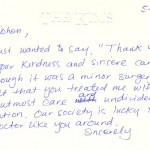 5-
ust wanted to say, "Thank
your kindness and sincere car
ough it was a minor surger
t that you treated me wit
utmost care and undivide
tion. Our society is lucky t
octor like you around.
Sincerely